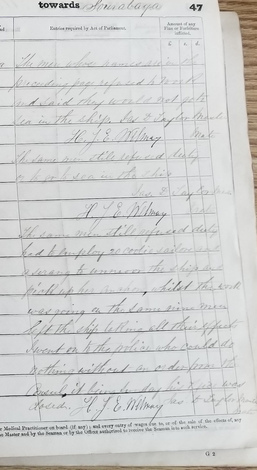 towards Sourabaya 47
Entries required by Act of Parliament.
Amount of any Fine or Forfeiture inflicted.
£ s. d.
The men whose names are on the
preceding page refused to work
and said they would not go to
sea in the ship. Jas D Taylor Master
H. J. E. Wilmey Mate
The same men still refused duty
or to work sea in the ship
Jas D Taylor
H. J. E. Wilmey
The same men still refused duty
had to employ 20 coolie sailors and
a serang to unmoor the ship and
pick up her anchor, whilst this work
was going on the same nine men
left the ship taking all their effects
I went on to the police who could do
nothing without an order from the
Consul, it being Sunday his was
closed. H. J. E. Wilmey Jas D Taylor
Medical Practitioner on board (if any); and every entry of wages due to, or of the sale of the effects of, any
Master and by the Seaman or by the Officer authorised to receive the Seaman into such service.
G 2